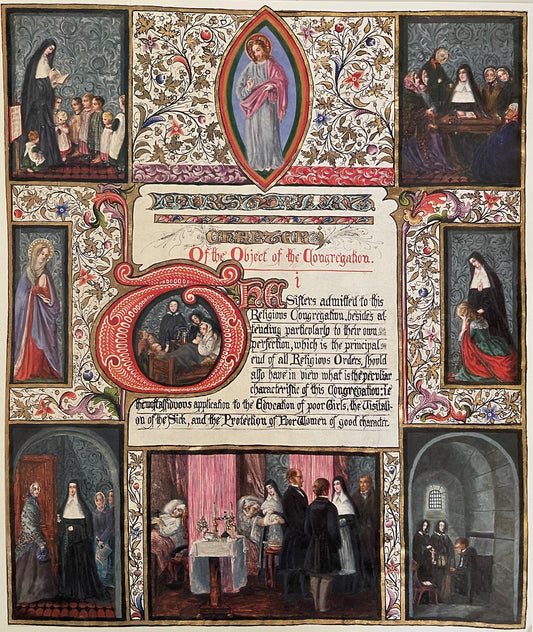 Of the Object of the Congregation.
i
THE Sisters admitted to this
Religious Congregation, besides at-
tending particularly to their own
perfection, which is the principal
end of all Religious Orders, should
also have in view what is the peculiar
characteristic of this Congregation: i.e
the most assiduous application to the Education of poor Girls, the Visitati-
on of the Sick, and the Protection of Poor Women of good character.